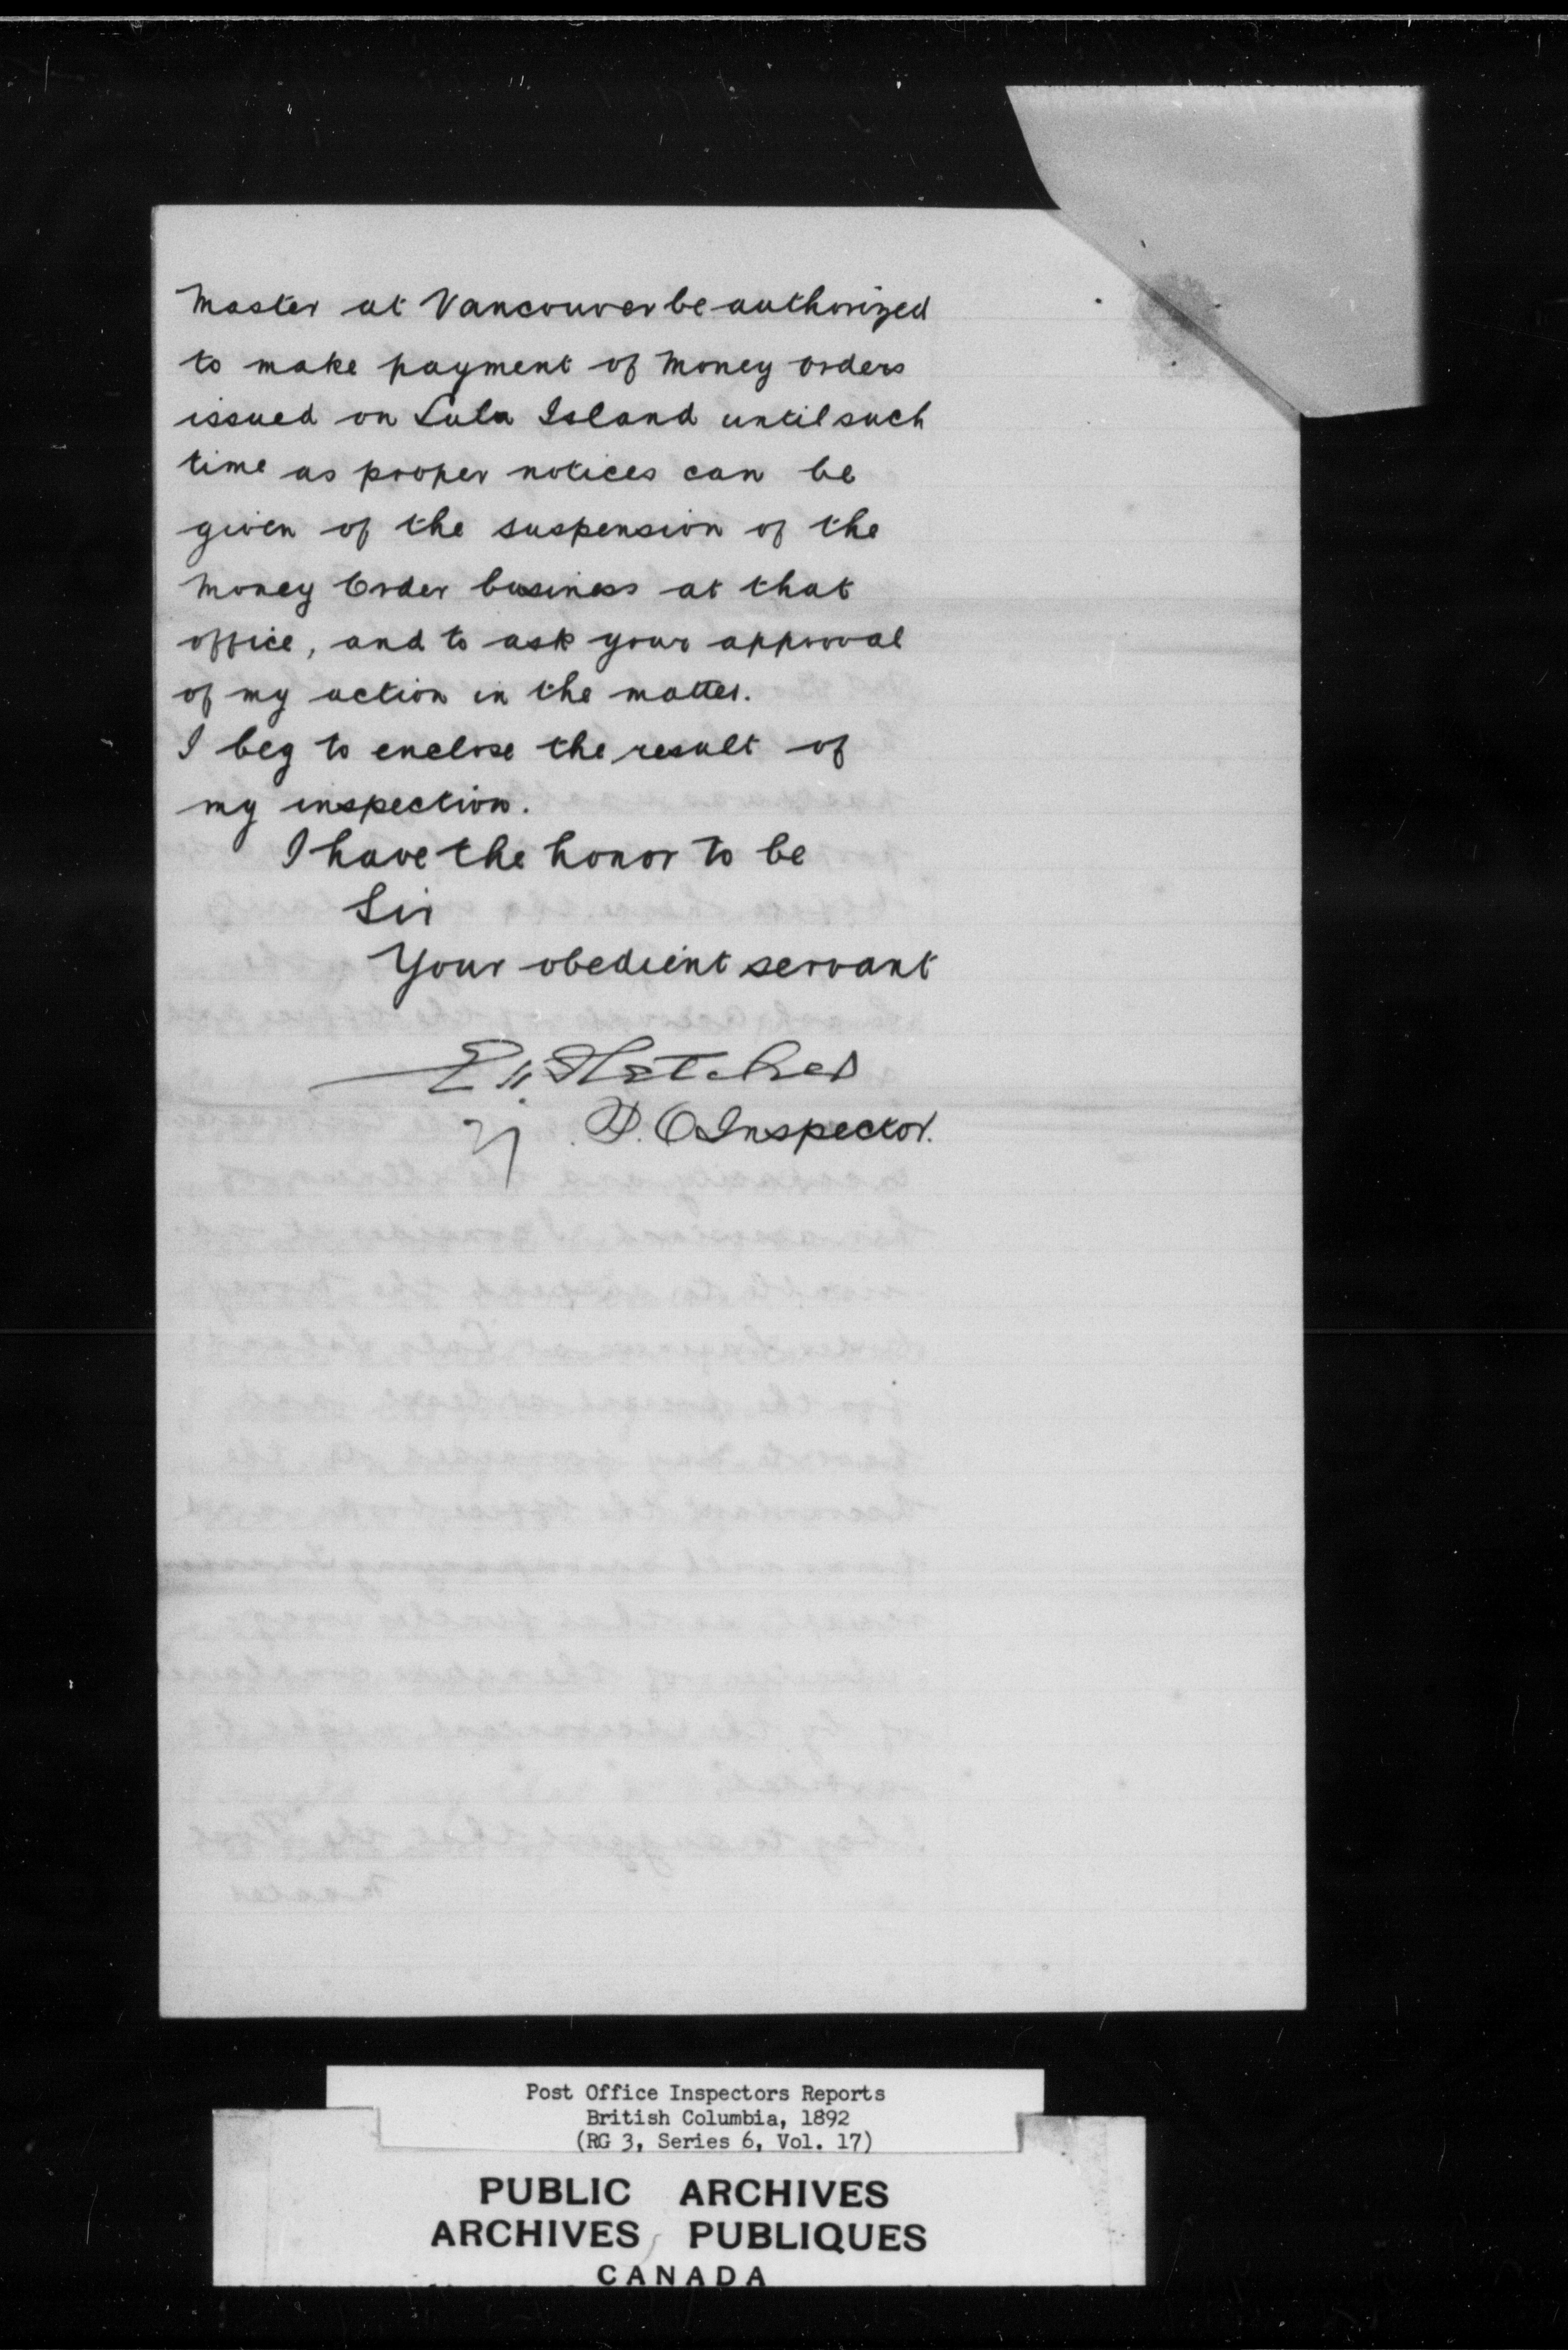 Master at Vancouver be authorized
to make payment of Money orders
issued on Lulu Island until such
time as proper notices can be
given of the suspension of the
Money Order business at that
office, and to ask your approval
of my action in the matter.
I beg to enclose the result of
my inspection.
I have the honor to be
Sir
Your obedient servant
E H Fletcher
P. O Inspector.
Post Office Inspectors Reports
British Columbia, 1892
(RG 3, Series 6, Vol. 17)
PUBLIC ARCHIVES
ARCHIVES PUBLIQUES
CANADA